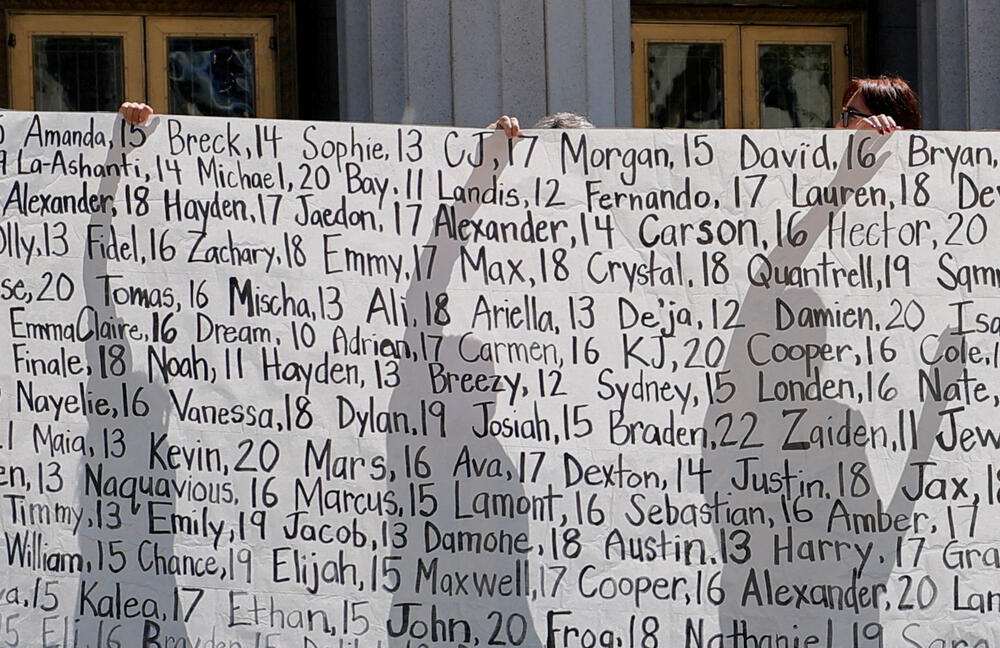 Amanda, 15 Breck, 14 Sophie, 13 CJ, 17 Morgan, 15 David, 16 Bryan,
La-Ashanti, 14 Michael, 20 Bay, 11 Landis, 12 Fernando, 17 Lauren, 18 De
Alexander, 18 Hayden, 17 Jaedon, 17 Alexander, 14 Carson, 16 Hector, 20
olly, 13 Fidel, 16 Zachary, 18 Emmy, 17 Max, 18 Crystal, 18 Quantrell, 19 Sam
se, 20 Tomas, 16 Mischa, 13 Ali, 18 Ariella, 13 De'ja, 12 Damien, 20 Isa
EmmaClaire, 16 Dream, 10 Adrian, 17 Carmen, 16 KJ, 20 Cooper, 16 Cole, 1
Finale, 18 Noah, 11 Hayden, 13 Breezy, 12 Sydney, 15 Londen, 16 Nate,
Nayelie, 16 Vanessa, 18 Dylan, 19 Josiah, 15 Braden, 22 Zaiden, 11 Jew
1 Maia, 13 Kevin, 20 Mars, 16 Ava, 17 Dexton, 14 Justin, 18 Jax, 1
en, 13 Naquavious, 16 Marcus, 15 Lamont, 16 Sebastian, 16 Amber, 17
Timmy, 13 Emily, 19 Jacob, 13 Damone, 18 Austin, 13 Harry, 17 Gra
William, 15 Chance, 19 Elijah, 15 Maxwell, 17 Cooper, 16 Alexander, 20 Lan
a, 15 Kalea, 17 Ethan, 15 John, 20 Frog, 18 Nathaniel 19
5 Eli, 16 Brayden 15